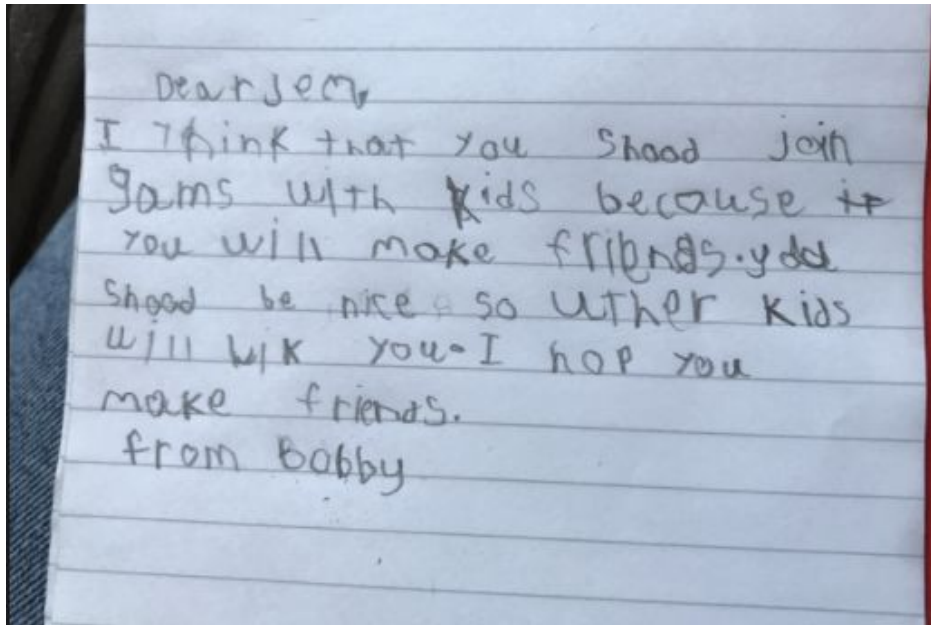 Dear Jem,
I Think that you Shood join
gams with kids because it
you will make friends. you
Shood be nice so uther kids
will lik you. I hop you
make friends.
from Bobby